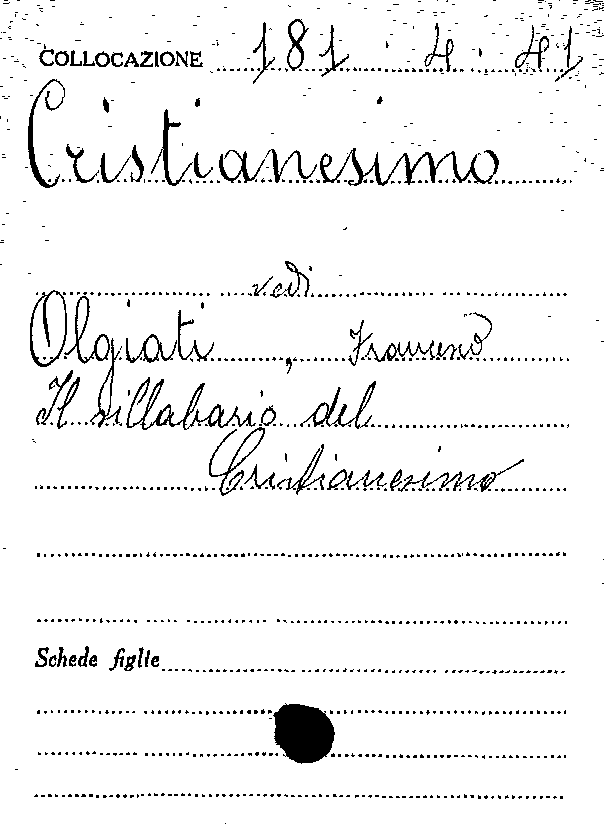 COLLOCAZIONE 181. 4. 41
Cristianesimo
vedi
Olgiati, Francesco
Il sillabario del
Cristianesimo
Schede figlie